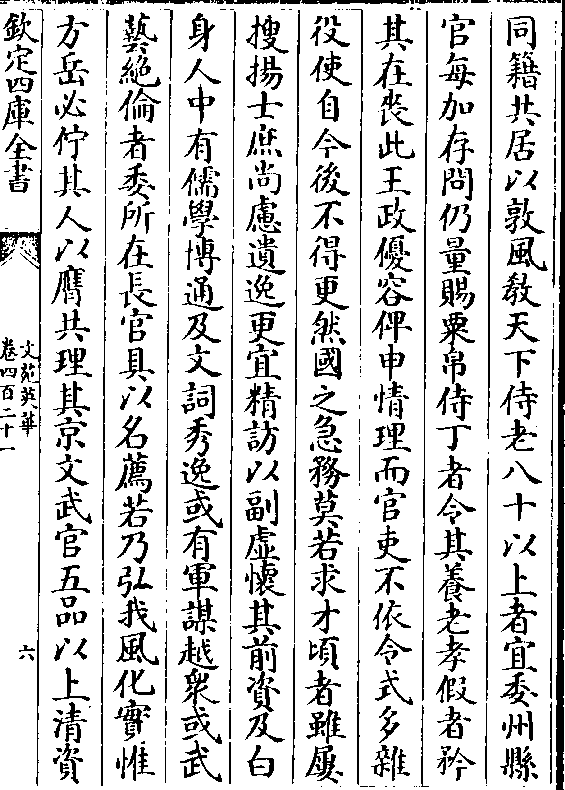 同籍共居以敦風教天下侍老八十以上者宜委州縣
官每加存問仍量賜粟帛侍丁者令其養老孝假者矜
其在喪此王政優容俾申情理而官吏不依令式多雜
役使自今後不得更然國之急務莫若求才頃者雖屢
搜揚士庶尚慮遺逸更宜精訪以副虛懷其前資及白
身人中有儒學博通及文詞秀逸或有軍謀越衆或武
藝絶倫者委所在長官具以名薦若乃弘我風化實惟
方岳必佇其人以膺共理其京文武官五品以上清資
欽定四庫全書
文苑英華
卷四百二十一
六